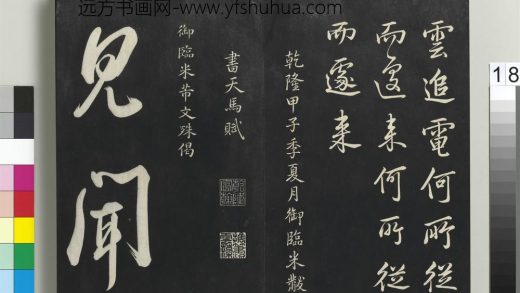 远方书画网-www.yfshuhua.com
雲追電何所從
而遽来何所從
而遽来
乾隆甲子季夏月御臨米黻
書天馬賦
御臨米芾文殊偈
見聞
18